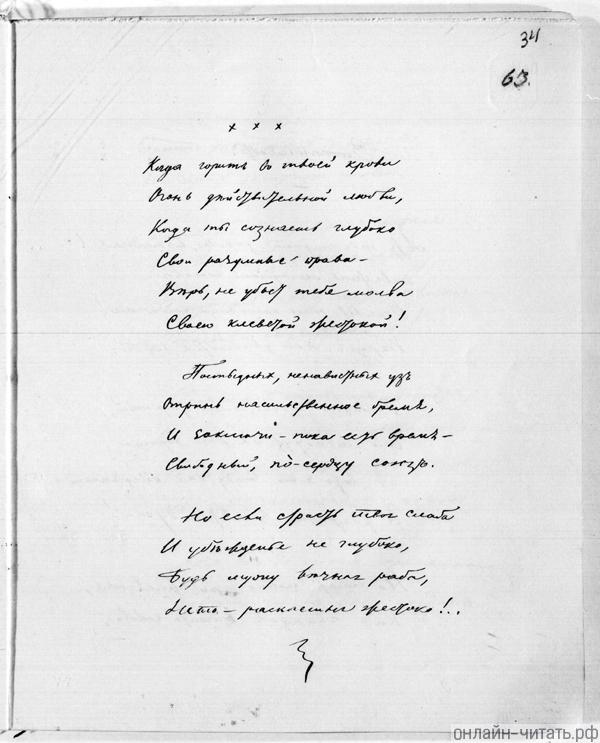 34
63.
× × ×
Когда горитъ въ твоей крови
Огонь действительной любви,
Когда ты сознаешь глубоко
Свои разумные права —
Верь, не убьетъ тебя молва
Своею клеветой жестокой!
Постыдныхъ, ненавистныхъ узъ
Отринь насильственное бремя,
И заключи — пока есть время —
Свободный, по-сердцу союзъ.
Но если страсть твоя слаба
И убежденье не глубоко,
Будь мужу вечная раба,
Не то — раскаешься жестоко!..
онлайн-читать.рф